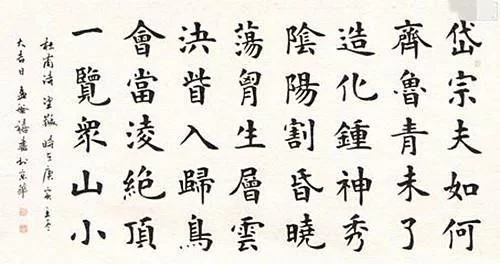 岱宗夫如何
齊魯青未了
造化鍾神秀
陰陽割昏曉
蕩胷生層雲
決眥入歸鳥
會當淩絕頂
一覽眾山小
杜甫詩望嶽時在庚寅立冬
大吉日書於京華